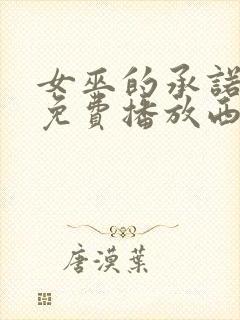 女巫的承諾
免費播放西
唐漠葉